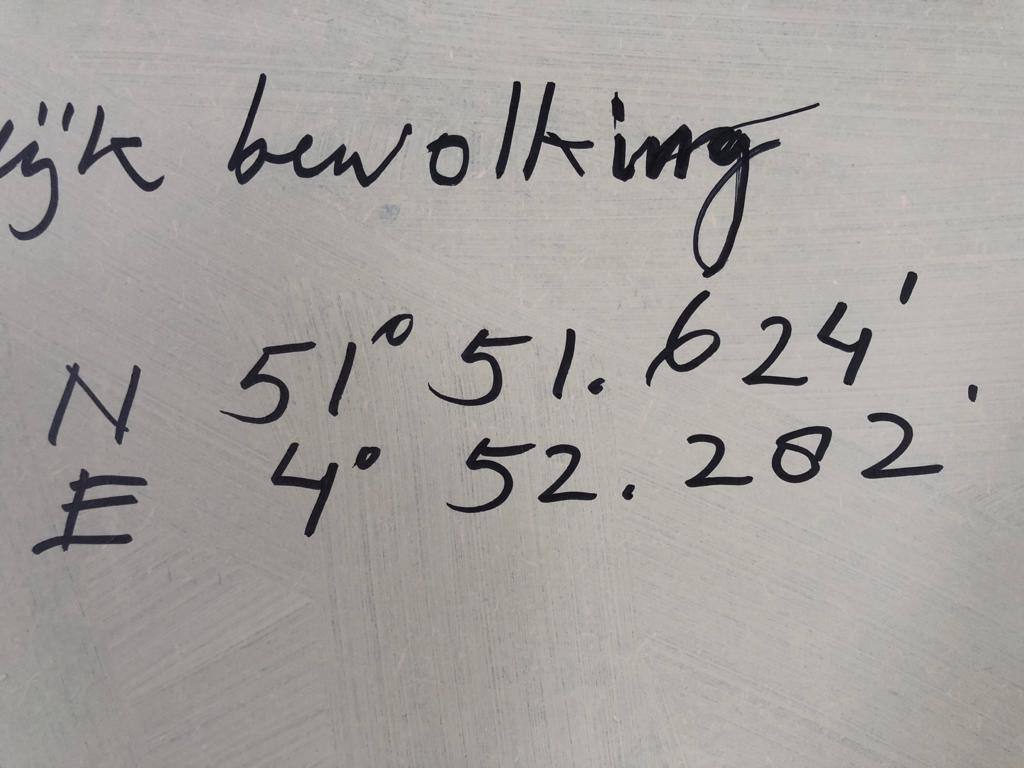 ijk bewolking
N 51° 51.624'
E 4° 52.282'